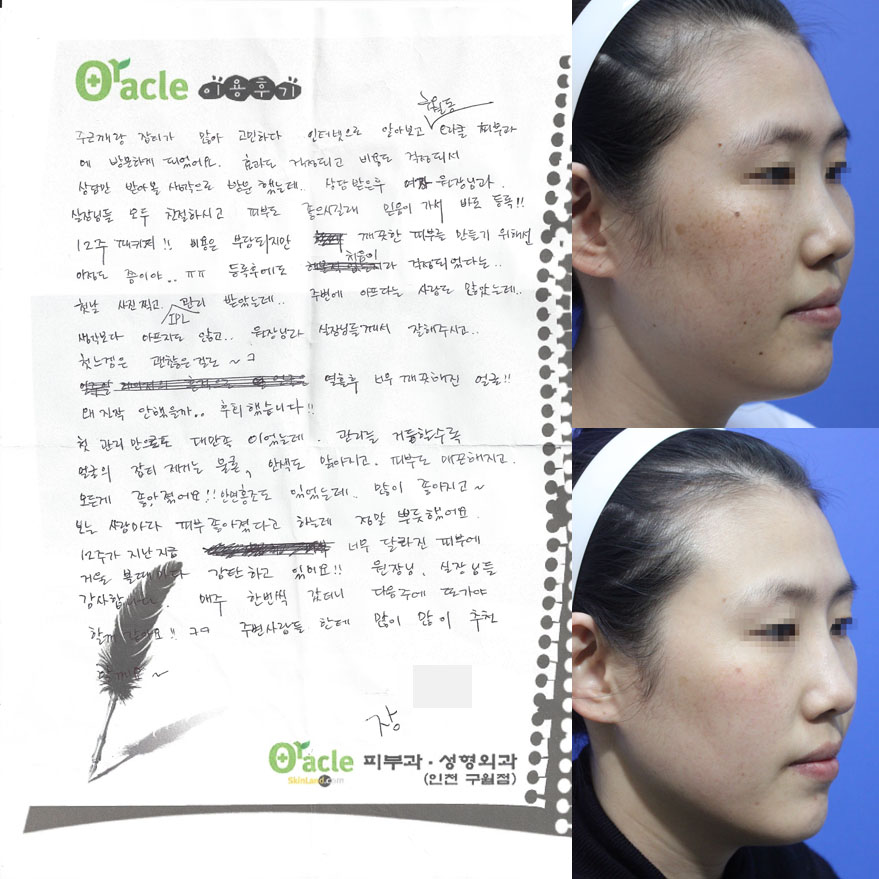 Oracle 이용후기
구월동
주근깨랑 잡티가 많아 고민하다 인터넷으로 알아보고 오라클 피부과
에 방문하게 되었어요. 효과도 걱정되고 비용도 걱정되서
상담만 받아볼 생각으로 방문했는데.. 상담 받은후 원장님과.
실장님들 모두 친절하시고 피부도 좋으시길래 믿음이 가서 바로 등록!!
12주 패키지!! 비용은 부담되지만 깨끗한 피부를 만들기 위해선
이정도 쯤이야.. ㅠㅠ 등록후에도 처음이라 걱정되었다는..
첫날 사진찍고 IPL 관리 받았는데.. 주변에 아프다는 사람도 많았는데..
생각보다 아프지도 않고.. 원장님과 실장님들께서 잘해주시고..
첫느낌은 괜찮은걸로 ~ ㅋ
열흘후 너무 깨끗해진 얼굴!!
왜 진작 안했을까.. 후회했습니다!!
첫 관리만으로도 대만족 이었는데. 관리를 거듭할수록
얼굴의 잡티 제거는 물론, 안색도 맑아지고. 피부도 매끈해지고.
모든게 좋아졌어요!! 안면홍조도 있었는데.. 많이 좋아지고~
보는 사람마다 피부좋아졌다고 하는데 정말 뿌듯했어요.
12주가 지난 지금 너무 달라진 피부에
거울 볼때마다 감탄하고 있어요!! 원장님, 실장님들
감사합니다. 매주 한번씩 갔더니 다음주에 또가야
할꺼 같아요!! ㅋㅋ 주변사람들 한테 많이 많이 추천
할께요~
장
Oracle 피부과·성형외과
SkinLand.com (인천 구월점)